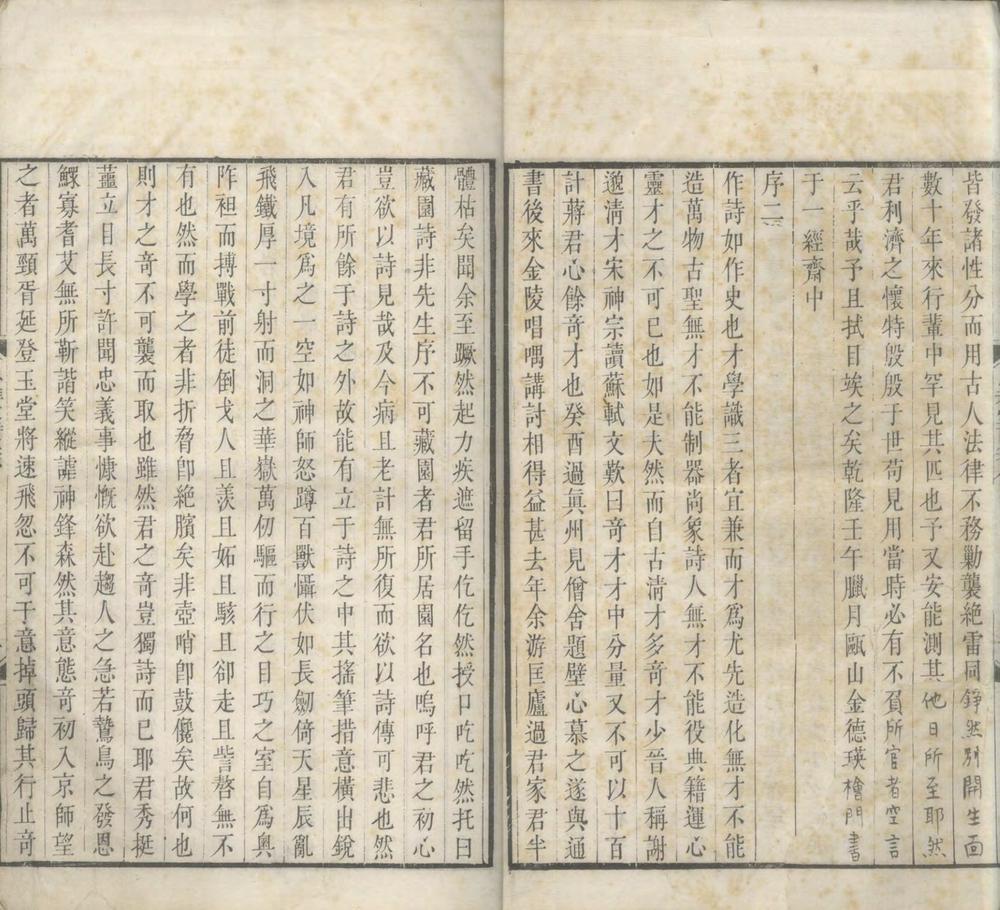 皆發諸性分而用古人法律不務勦襲絶雷同錚然別開生面
數十年來行輩中罕見其匹也予又安能測其他日所至耶然
君利濟之懷特殷殷于世苟見用當時必有不負所官者空言
云乎哉予且拭目竢之矣乾隆壬午臘月甌山金德瑛檜門書
于一經齋中
序二
作詩如作史也才學識三者宜兼而才爲尤先造化無才不能
造萬物古聖無才不能制器尚象詩人無才不能役典籍運心
靈才之不可已也如是夫然而自古淸才多奇才少晉人稱謝
邈淸才宋神宗讀蘇軾文歎曰奇才才中分量又不可以十百
計蔣君心餘奇才也癸酉過眞州見僧舍題壁心慕之遂與通
書後來金陵唱喁講討相得益甚去年余游匡廬過君家君半
體枯矣聞余至蹶然起力疾遮留手仡仡然授口吃吃然托曰
藏園詩非先生序不可藏園者君所居園名也嗚呼君之初心
豈欲以詩見哉及今病且老計無所復而欲以詩傳可悲也然
君有所餘于詩之外故能有立于詩之中其搖筆措意橫出銳
入凡境爲之一空如神師怒蹲百獸懾伏如長劒倚天星辰亂
飛鐵厚一寸射而洞之華嶽萬仞驅而行之目巧之室自爲奧
阼袒而搏戰前徒倒戈人且羨且妬且駭且卻走且訾謷無不
有也然而學之者非折脅卽絶臏矣非壺哨卽鼓儳矣故何也
則才之奇不可襲而取也雖然君之奇豈獨詩而已耶君秀挺
薑立目長寸許聞忠義事慷慨欲赴趨人之急若鷙鳥之發恩
鰥寡耆艾無所靳諧笑縱謔神鋒森然其意態奇初入京師望
之者萬頸胥延登玉堂將速飛忽不可于意掉頭歸其行止奇